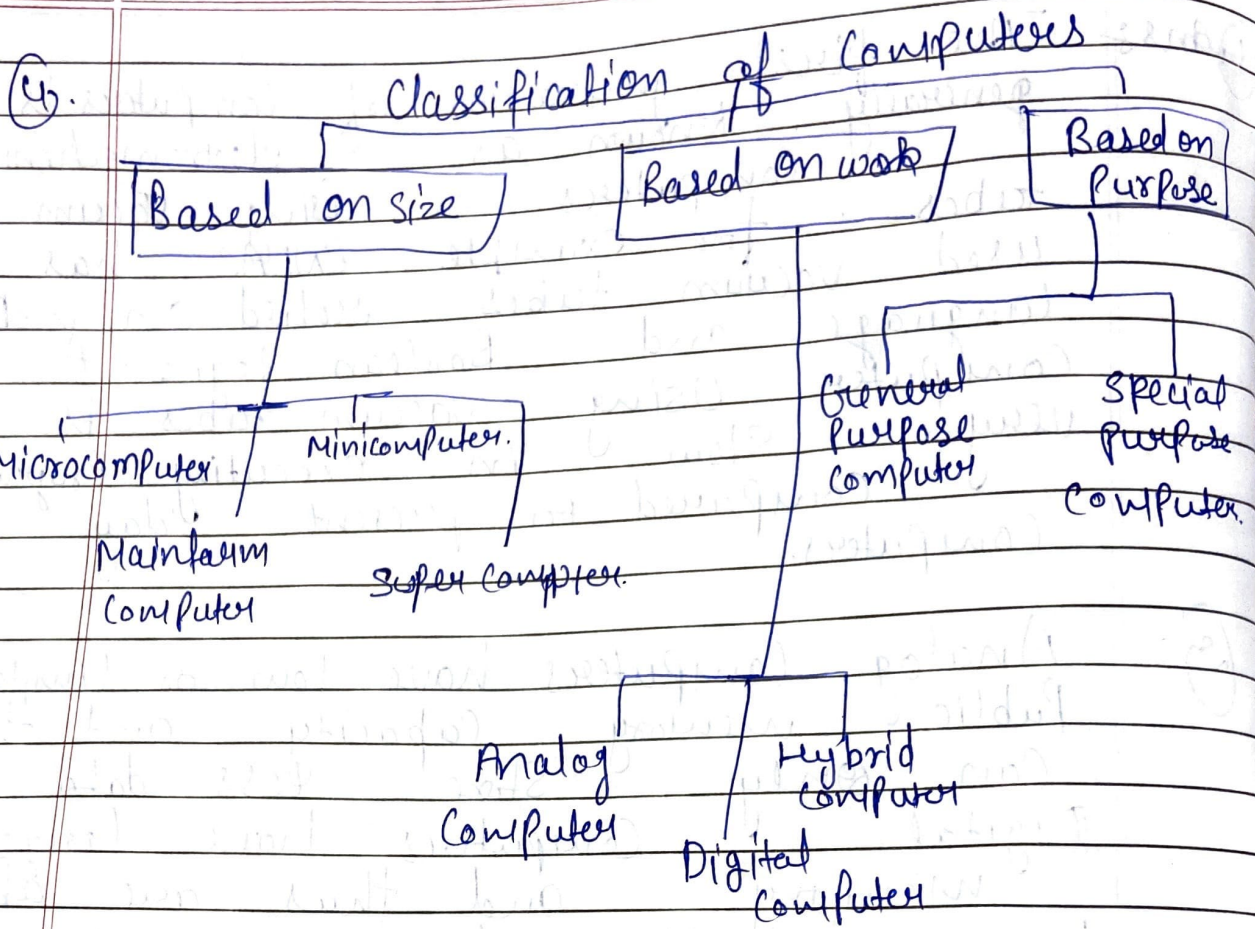 4).
Classification of Computers
Based on size
Based on work
Based on
Purpose
Microcomputer
Minicomputer.
Mainfarm
Computer
Super Compter.
General
Purpose
Computer
Special
Purpose
Computer.
Analog
Computer
Hybrid
Computer
Digital
Computer